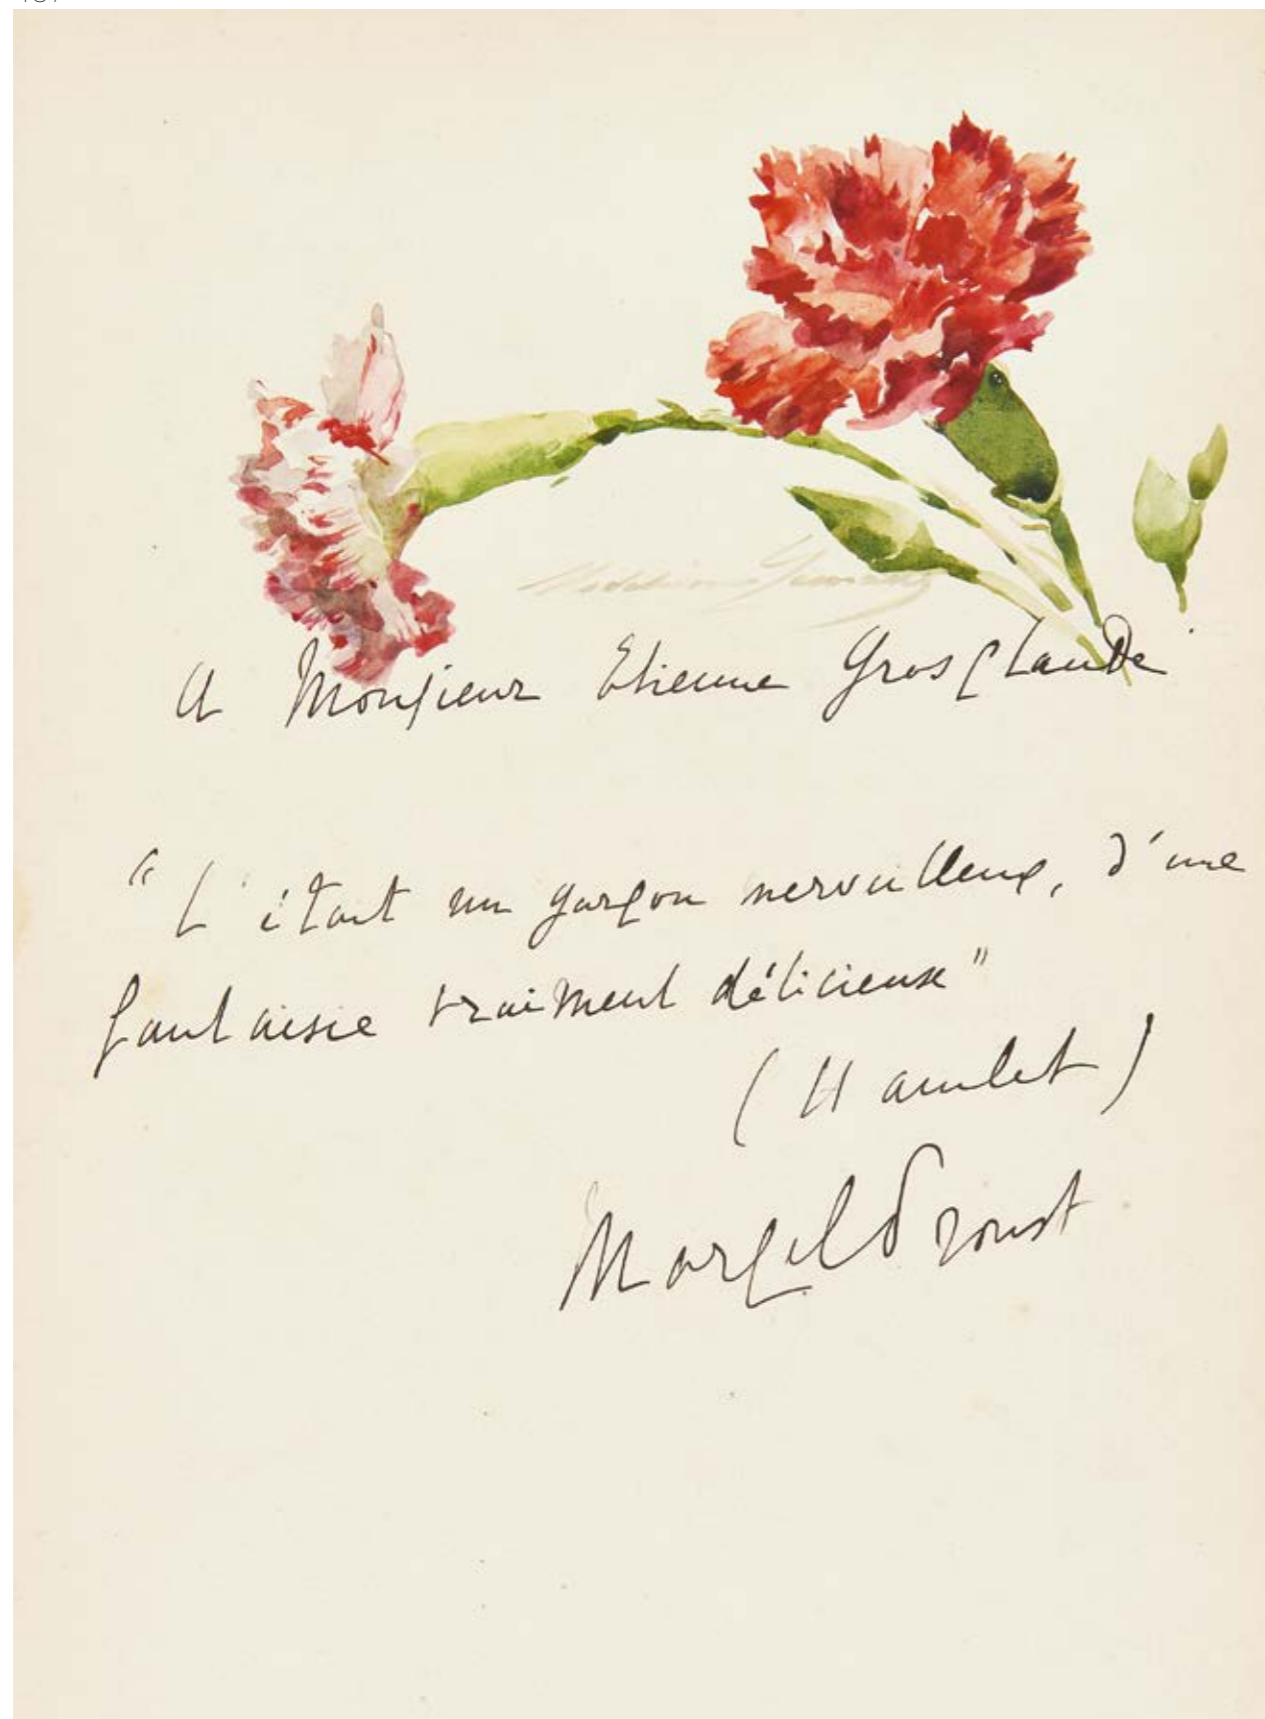 Madeleine
A Monsieur Etienne Grosclaude
"C'était un garçon merveilleux, d'une
fantaisie vraiment délicieuse"
(Hamlet)
Marcel Proust